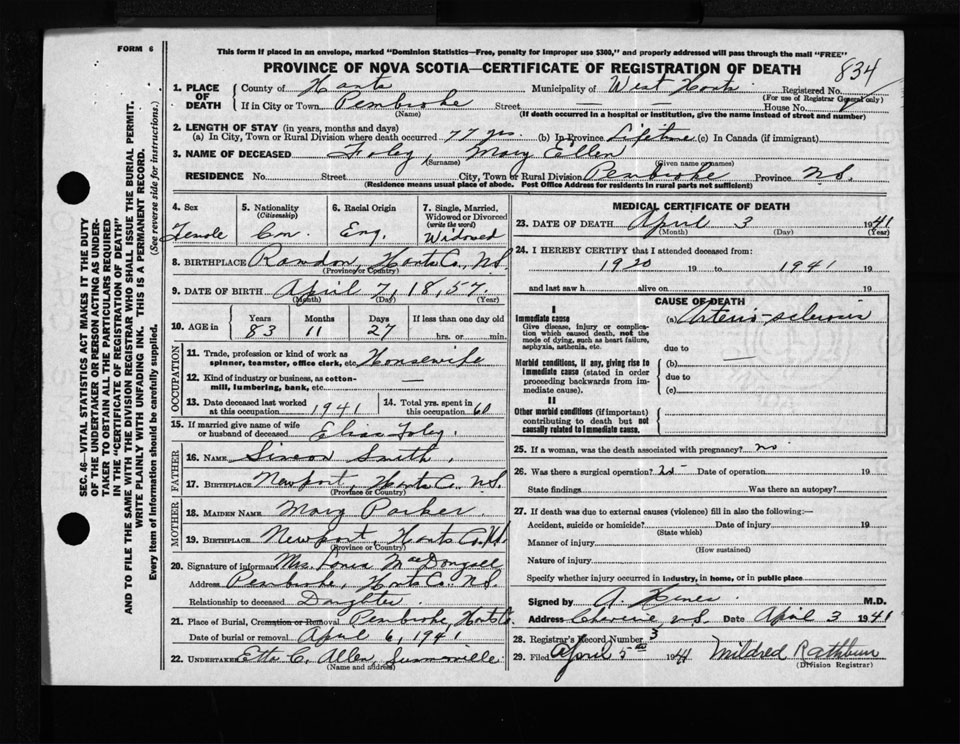 FORM 6
This form if placed in an envelope, marked "Dominion Statistics—Free, penalty for improper use $300," and properly addressed will pass through the mail "FREE"
PROVINCE OF NOVA SCOTIA—CERTIFICATE OF REGISTRATION OF DEATH
834
1. PLACE OF DEATH
County of Hants Municipality of West Hants Registered No.
(For use of Registrar General only)
If in City or Town Pembroke Street — — House No.
(Name) (If death occurred in a hospital or institution, give the name instead of street and number)
2. LENGTH OF STAY (in years, months and days)
(a) In City, Town or Rural Division where death occurred 77 yrs. (b) In Province Lifetime (c) In Canada (if immigrant)
3. NAME OF DECEASED Foley, Mary Ellen
(Surname) (Given name or names)
RESIDENCE No. Street City, Town or Rural Division Pembroke Province N.S.
(Residence means usual place of abode. Post Office Address for residents in rural parts not sufficient)
4. Sex Female
5. Nationality (Citizenship) Can.
6. Racial Origin Eng.
7. Single, Married, Widowed or Divorced (write the word) Widowed
8. BIRTHPLACE Rawdon, Hants Co., N.S.
(Province or Country)
9. DATE OF BIRTH April 7, 1857
(Month) (Day) (Year)
10. AGE in Years 83 Months 11 Days 27 If less than one day old hrs. or min.
OCCUPATION
11. Trade, profession or kind of work as spinner, teamster, office clerk, etc. Housewife
12. Kind of industry or business, as cotton-mill, lumbering, bank, etc. —
13. Date deceased last worked at this occupation 1941
14. Total yrs. spent in this occupation 60
15. If married give name of wife or husband of deceased Foley.
FATHER
16. NAME Simeon Smith,
17. BIRTHPLACE Newport, Hants Co., N.S.
(Province or Country)
MOTHER
18. MAIDEN NAME Mary Parker
19. BIRTHPLACE Newport, Hants Co. N.S.
(Province or Country)
20. Signature of informant Mrs. MacDougall
Address Pembroke, Hants Co. N.S.
Relationship to deceased Daughter.
21. Place of Burial, Cremation or Removal Pembroke, Hants Co.
Date of burial or removal April 6, 1941
22. UNDERTAKER Etta C. Allen, Summerville
(Name and address)
MEDICAL CERTIFICATE OF DEATH
23. DATE OF DEATH April 3 1941
(Month) (Day) (Year)
24. I HEREBY CERTIFY that I attended deceased from:
1920 19 to 1941 19
and last saw h alive on 19
CAUSE OF DEATH
I
Immediate cause
Give disease, injury or complication which caused death, not the mode of dying, such as heart failure, asphyxia, asthenia, etc.
(a) Arterio-sclerosis
due to
Morbid conditions, if any, giving rise to immediate cause (stated in order proceeding backwards from immediate cause).
(b) —
due to
(c)
II
Other morbid conditions (if important) contributing to death but not causally related to immediate cause.
25. If a woman, was the death associated with pregnancy? no
26. Was there a surgical operation? no Date of operation 19
State findings Was there an autopsy?
27. If death was due to external causes (violence) fill in also the following:—
Accident, suicide or homicide? Date of injury 19
(State which)
Manner of injury
(How sustained)
Nature of injury
Specify whether injury occurred in industry, in home, or in public place
Signed by A. Hines M.D.
Address Cheverie, N.S. Date April 3 1941
28. Registrar's Record Number 3
29. Filed April 5th 1941 Mildred Rathbun
(Division Registrar)
SEC. 46—VITAL STATISTICS ACT MAKES IT THE DUTY
OF THE UNDERTAKER OR PERSON ACTING AS UNDER-
TAKER TO OBTAIN ALL THE PARTICULARS REQUIRED
IN THE "CERTIFICATE OF REGISTRATION OF DEATH"
AND TO FILE THE SAME WITH THE DIVISION REGISTRAR WHO SHALL ISSUE THE BURIAL PERMIT.
WRITE PLAINLY WITH UNFADING INK. THIS IS A PERMANENT RECORD.
Every item of information should be carefully supplied. (See reverse side for instructions.)